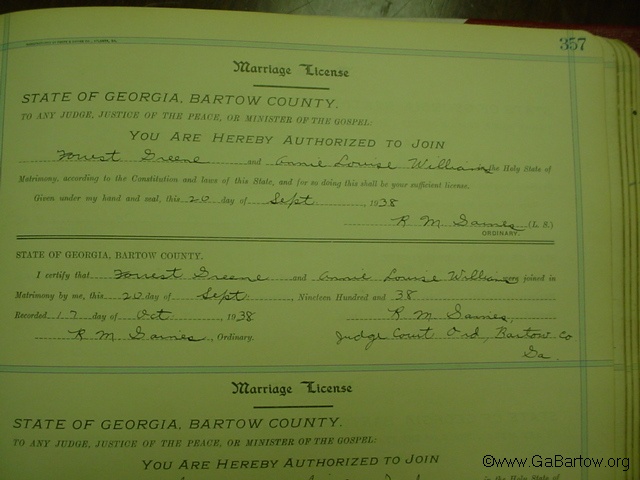 357
Marriage License
STATE OF GEORGIA, BARTOW COUNTY.
TO ANY JUDGE, JUSTICE OF THE PEACE, OR MINISTER OF THE GOSPEL:
YOU ARE HEREBY AUTHORIZED TO JOIN
Forrest Greene and Annie Louise Williams the Holy State of
Matrimony, according to the Constitution and laws of this State, and for so doing this shall be your sufficient license.
Given under my hand and seal, this 20 day of Sept, 1938
R M Gaines (L. S.)
ORDINARY.
STATE OF GEORGIA, BARTOW COUNTY.
I certify that Forrest Greene and Annie Louise Williams were joined in
Matrimony by me, this 20 day of Sept., Nineteen Hundred and 38
Recorded 17 day of Oct 1938 R M Gaines,
R M Gaines, Ordinary. Judge Court Ord, Bartow Co
Ga.
Marriage License
STATE OF GEORGIA, BARTOW COUNTY.
TO ANY JUDGE, JUSTICE OF THE PEACE, OR MINISTER OF THE GOSPEL:
YOU ARE HEREBY AUTHORIZED TO JOIN
©www.GaBartow.org